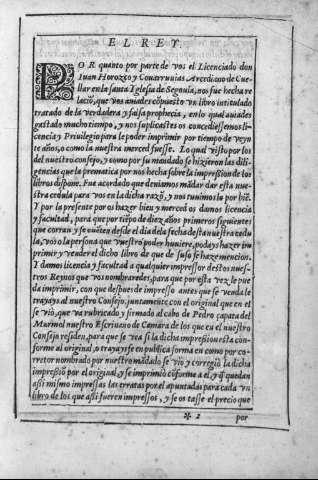 EL REY
POR quanto por parte de vos el Licenciado don
Iuan Horozco y Couarruuias Arcediano de Cue
llar en la santa Yglesia de Segouia, nos fue hecha re
lació, que vos auiades cópuesto vn libro intitulado
tratado de la verdadera y falsa prophecia, en lo qual auiades
gastado mucho tiempo, y nos suplicastes os concediessemos li-
cencia y Priuilegio para le poder imprimir por tiempo de veyn
te años, o como la nuestra merced fuesse. Lo qual visto por los
del nuestro consejo, y como por su mandado se hizieron las dili-
gencias que la prematica por nos hecha sobre la impressió de los
libros dispone. Fue acordado que deuiamos mádar dar esta nue-
stra cedula para vos en la dicha razó, y nos tuuimoslo por bié.
Y por la presente por os hazer bien y merced os damos licencia
y facultad, para que por tiépo de diez años primeros siguientes
que corran y se cuéten desde el dia de la fecha desta nuestra cedu
la, vos o la persona que vuestro poder huuiere, podays hazer im
primir y vender el dicho libro de que de suso se haze mencion.
Y damos licencia y facultad a qualquier impressor destos nues-
tros Reynos que vos nombraredes, para que por esta vez le pue
da imprimir, con que despues de impresso antes que se venda le
traygays al nuestro Consejo, juntamente con el original que en el
se vio, que va rubricado y firmado al cabo de Pedro çapata del
Marmol nuestro Escriuano de Camara de los que en el nuestro
Consejo residen, para que se vea si la dicha impressió esta con-
forme al original, o traygays fe en publica forma en como por co-
rretor nombrado por nuestro mádado se vio y corregio la dicha
impressió por el original, y se imprimio cóforme a el, y q̃ quedan
assi mismo impressas las erratas por el apuntadas para cada vn
libro de los que assi fueren impressos, y se os tasse el precio que
* 2 por